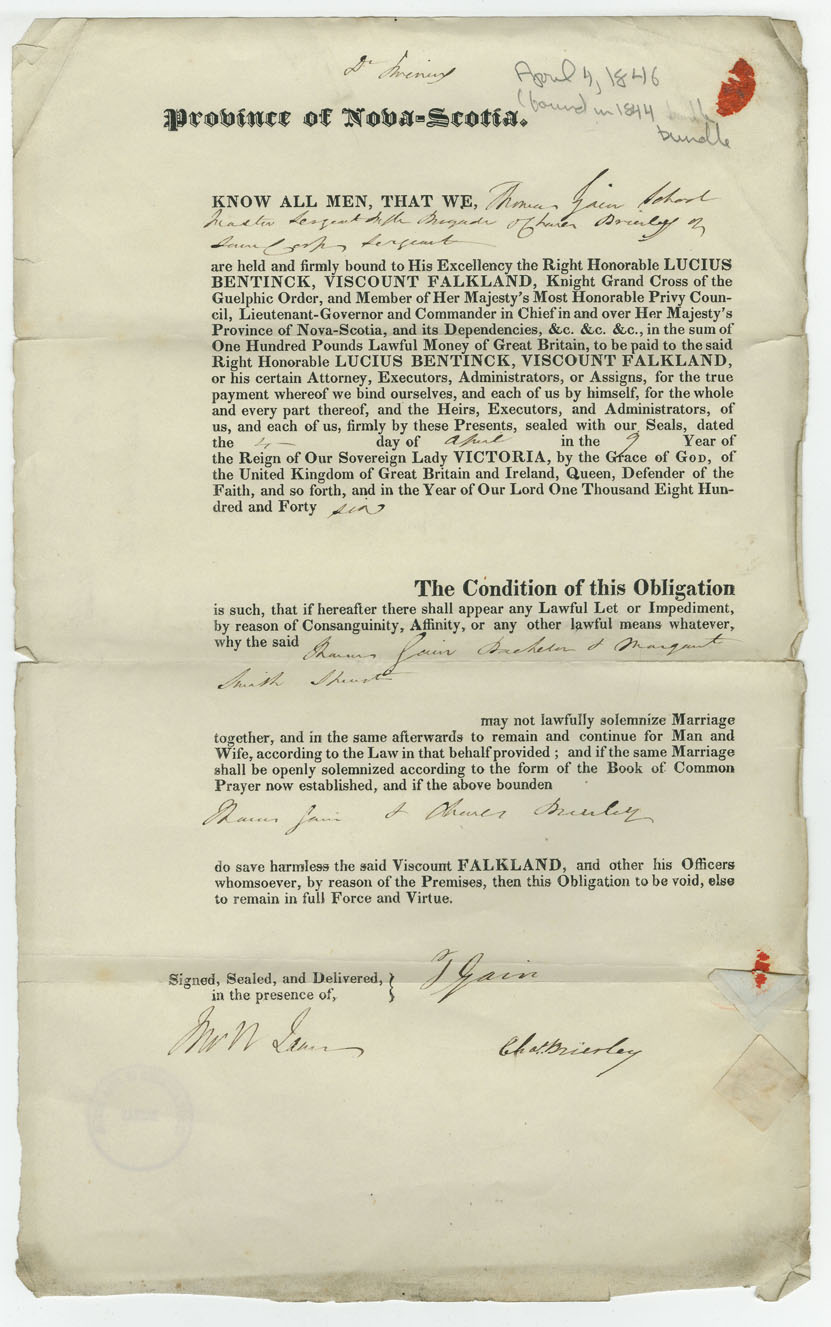 Dr
April 4, 1846
(found in 1844
bundle
Province of Nova-Scotia.
KNOW ALL MEN, THAT WE, Thomas Gain School
Master Sergeant Rifle Brigade & Charles Brierley of
same Corps Sergeant
are held and firmly bound to His Excellency the Right Honorable LUCIUS
BENTINCK, VISCOUNT FALKLAND, Knight Grand Cross of the
Guelphic Order, and Member of Her Majesty's Most Honorable Privy Coun-
cil, Lieutenant-Governor and Commander in Chief in and over Her Majesty's
Province of Nova-Scotia, and its Dependencies, &c. &c. &c., in the sum of
One Hundred Pounds Lawful Money of Great Britain, to be paid to the said
Right Honorable LUCIUS BENTINCK, VISCOUNT FALKLAND,
or his certain Attorney, Executors, Administrators, or Assigns, for the true
payment whereof we bind ourselves, and each of us by himself, for the whole
and every part thereof, and the Heirs, Executors, and Administrators, of
us, and each of us, firmly by these Presents, sealed with our Seals, dated
the 4 day of April in the 9 Year of
the Reign of Our Sovereign Lady VICTORIA, by the Grace of GOD, of
the United Kingdom of Great Britain and Ireland, Queen, Defender of the
Faith, and so forth, and in the Year of Our Lord One Thousand Eight Hun-
dred and Forty six
The Condition of this Obligation
is such, that if hereafter there shall appear any Lawful Let or Impediment,
by reason of Consanguinity, Affinity, or any other lawful means whatever,
why the said Thomas Gain Bachelor & Margaret
Smith
may not lawfully solemnize Marriage
together, and in the same afterwards to remain and continue for Man and
Wife, according to the Law in that behalf provided ; and if the same Marriage
shall be openly solemnized according to the form of the Book of Common
Prayer now established, and if the above bounden
Thomas Gain & Charles Brierley
do save harmless the said Viscount FALKLAND, and other his Officers
whomsoever, by reason of the Premises, then this Obligation to be void, else
to remain in full Force and Virtue.
Signed, Sealed, and Delivered, }
in the presence of,
T Gain
Chas. Brierley